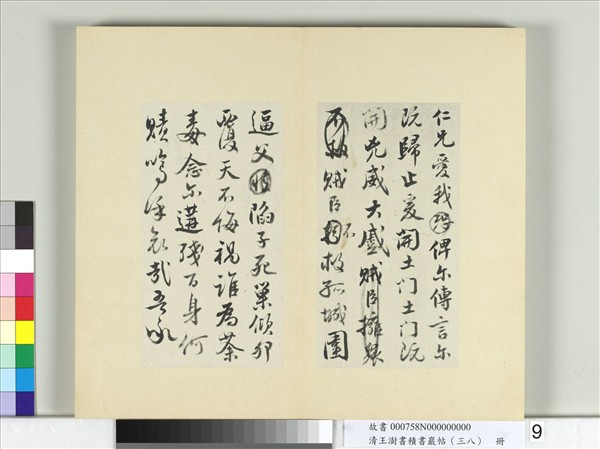 仁兄愛我恐俾尔傳言尔
既歸止爰開土門土門既
開兇威大蹙賊臣擁眾
不救賊臣不救孤城圍
逼父陷子死巢傾卵
覆天不悔禍誰為荼
毒念尔遘殘百身何
贖嗚呼哀哉吾承
故書 000758N000000000
清王澍書積書巖帖（三八） 冊
9